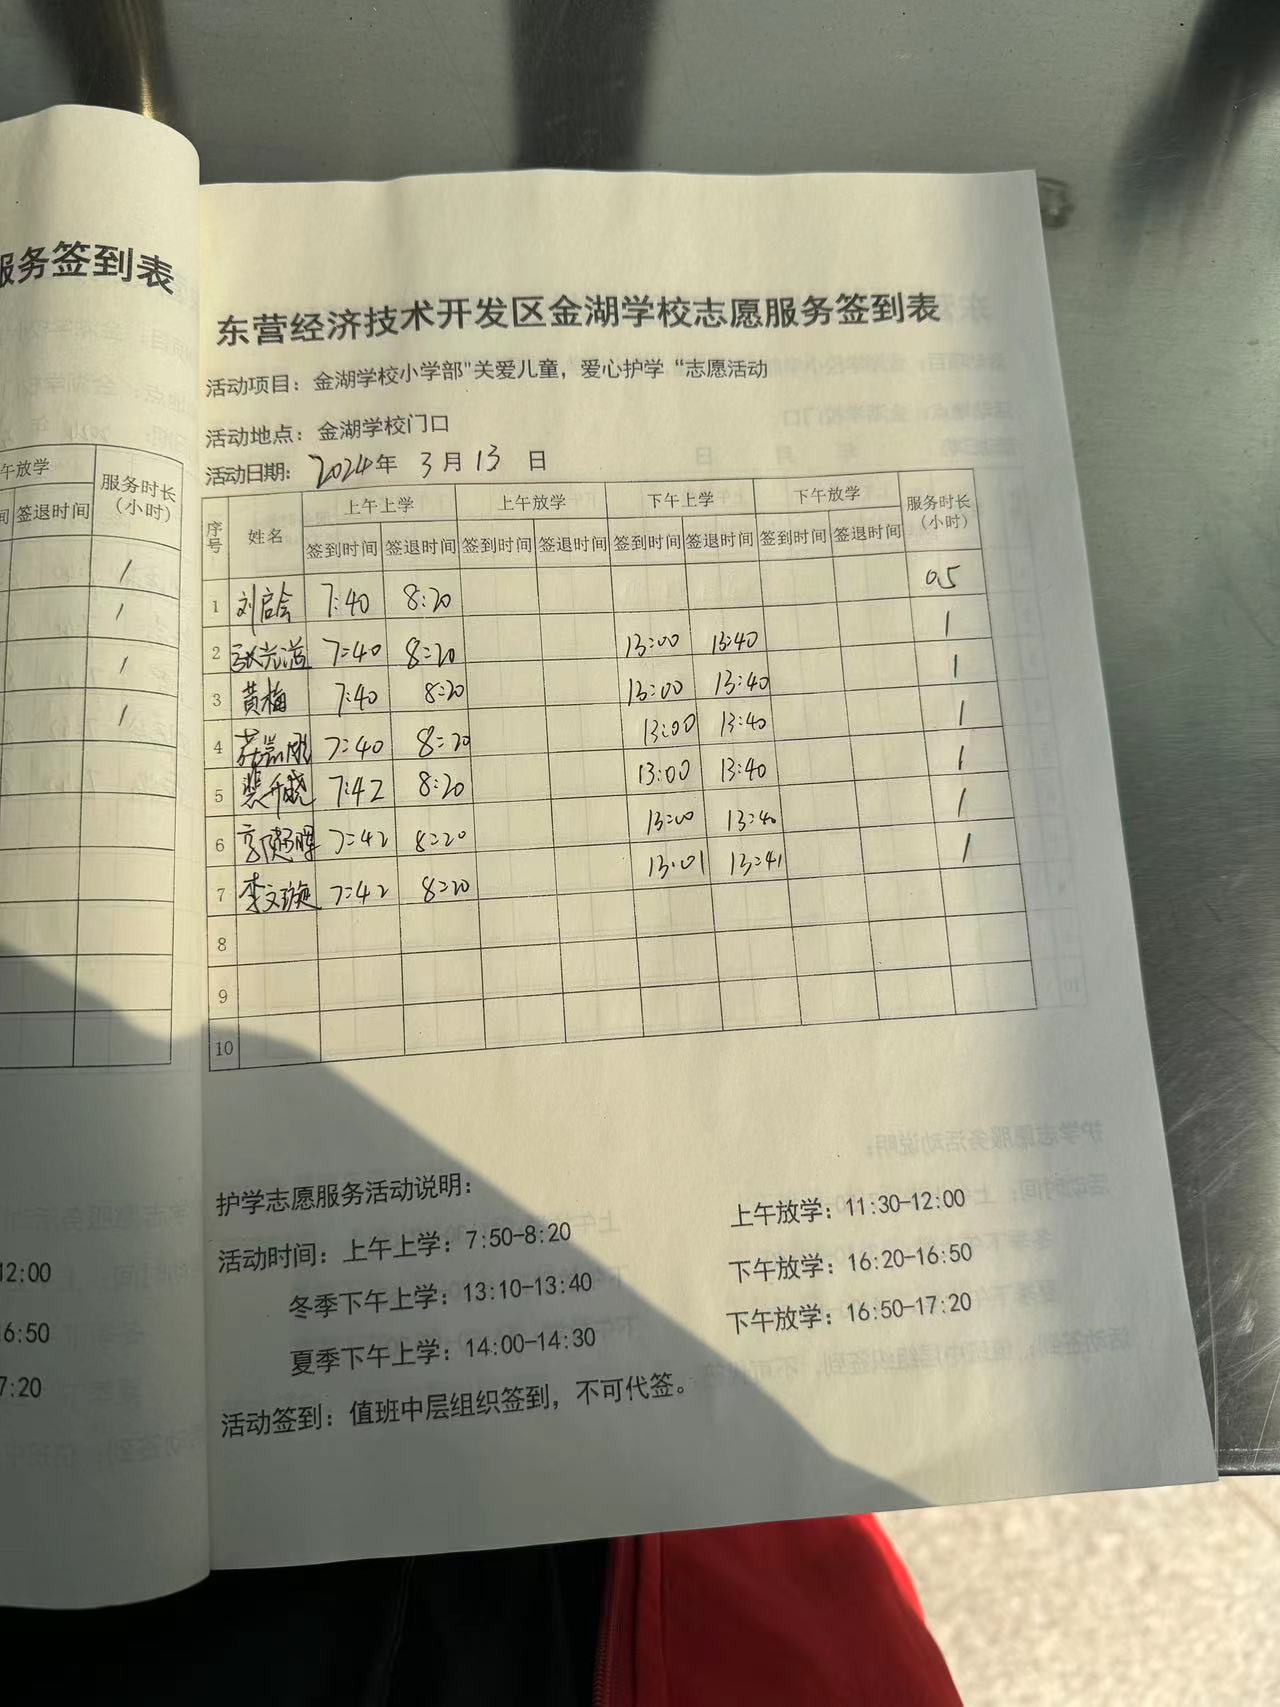 服务签到表
午放学
服务时长
(小时)
签退时间
1
1
1
1
12:00
16:50
7:20
东营经济技术开发区金湖学校志愿服务签到表
活动项目：金湖学校小学部"关爱儿童，爱心护学“志愿活动
活动地点：金湖学校门口
活动日期：2024年 3月13 日
序号 姓名 上午上学 上午放学 下午上学 下午放学 服务时长(小时)
签到时间 签退时间 签到时间 签退时间 签到时间 签退时间 签到时间 签退时间
1 刘启会 7:40 8:20 0.5
2 7:40 8:20 13:00 13:40 1
3 黄梅 7:40 8:20 13:00 13:40 1
4 7:40 8:20 13:00 13:40 1
5 7:42 8:20 13:00 13:40 1
6 7:42 8:20 13:00 13:40 1
7 李文璇 7:42 8:20 13:01 13:41 1
8
9
10
护学志愿服务活动说明：
活动时间：上午上学：7:50-8:20 上午放学：11:30-12:00
冬季下午上学：13:10-13:40 下午放学：16:20-16:50
夏季下午上学：14:00-14:30 下午放学：16:50-17:20
活动签到：值班中层组织签到，不可代签。